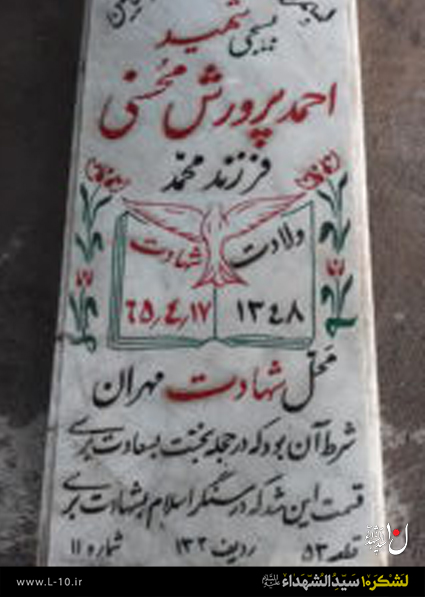 شهید
بسیجی
احمد پرورش محسنی
فرزند محمد
ولادت شهادت
۱۳۴۸ ۶۵٫۴٫۱۷
محل شهادت مهران
شرط آن بود که در حجله بختت بسعادت بری
قسمت این شد که در سنگر اسلام بشهادت بری
قطعه ۵۳ ردیف ۱۳۲ شماره ۱۱
www.L-10.ir لشکر۱۰ سیدالشهداء